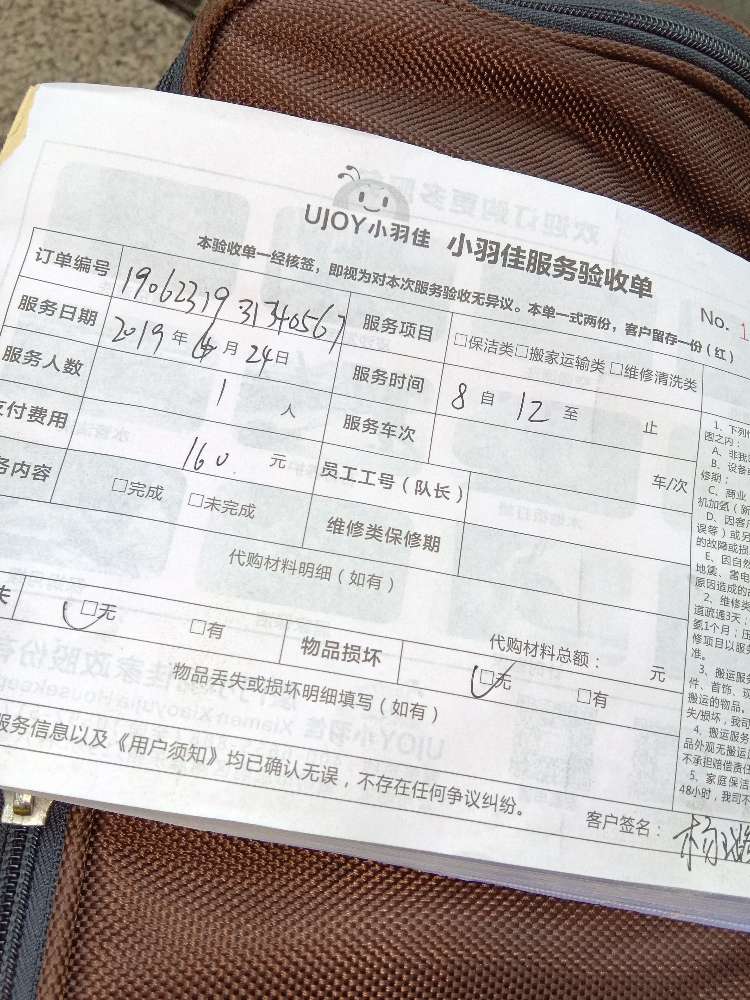 UJOY小羽佳 小羽佳服务验收单
本验收单一经核签，即视为对本次服务验收无异议。本单一式两份，客户留存一份（红）
No. 1
订单编号 19062319 31340567 服务项目 □保洁类□搬家运输类 □维修清洗类
服务日期 2019 年 6 月 24 日 服务时间 8 自 12 至 止
服务人数 1 人 服务车次 车/次
支付费用 160 元 员工工号（队长）
务内容 □完成 □未完成 维修类保修期
代购材料明细（如有）
代购材料总额： 元
失 □无 □有 物品损坏 □无 □有
物品丢失或损坏明细填写（如有）
服务信息以及《用户须知》均已确认无误，不存在任何争议纠纷。
客户签名： 杨
1、下列
图之内：
A、非我
B、设备
修期：
C、商业
机加氢（新
D、因客
误等）或另
的故障或损
E、因自然
地震、雷电
原因造成的
2、维修类
道疏通3天；
氨1个月；压
修项目以服务
准。
3、搬运服务
件、首饰、
搬运的物品，
失/损坏，我司
4、搬运服务
品外观无搬运
不承担赔偿责任
5、家庭保洁
48小时，我司不
欢迎订购更多服务